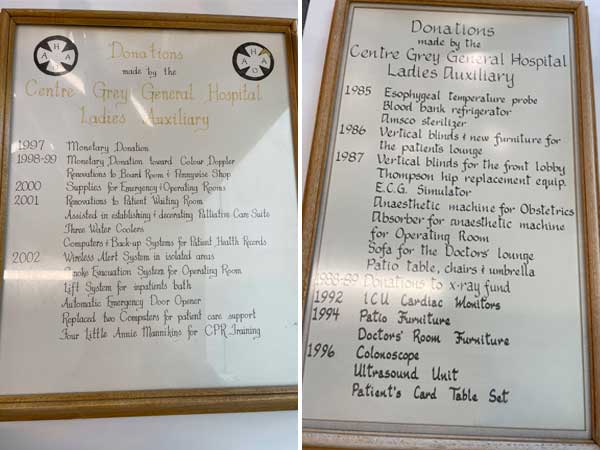 HAHA
HADA
Donations
made by the
Centre Grey General Hospital
Ladies Auxiliary
1997 Monetary Donation
1998-99 Monetary Donation toward Colour Doppler
Renovations to Board Room & Pennywise Shop
2000 Supplies for Emergency & Operating Rooms
2001 Renovations to Patient Waiting Room
Assisted in establishing & decorating Palliative Care Suite
Three Water Coolers
Computers & Back-up Systems for Patient Health Records
2002 Wireless Alert System in isolated areas
Smoke Evacuation System for Operating Room
Lift System for inpatients bath
Automatic Emergency Door Opener
Replaced two Computers for patient care support
Four Little Annie Mannikins for CPR Training
Donations
made by the
Centre Grey General Hospital
Ladies Auxiliary
1985 Esophygeal temperature probe
Blood bank refrigerator
Amsco sterilizer
1986 Vertical blinds & new furniture for
the patients lounge
1987 Vertical blinds for the front lobby
Thompson hip replacement equip.
E.C.G. Simulator
Anaesthetic machine for Obstetrics
Absorber for anaesthetic machine
for Operating Room
Sofa for the Doctors' lounge
Patio table, chairs & umbrella
1988-89 Donations to x-ray fund
1992 ICU Cardiac Monitors
1994 Patio Furniture
Doctors' Room Furniture
1996 Colonoscope
Ultrasound Unit
Patient's Card Table Set